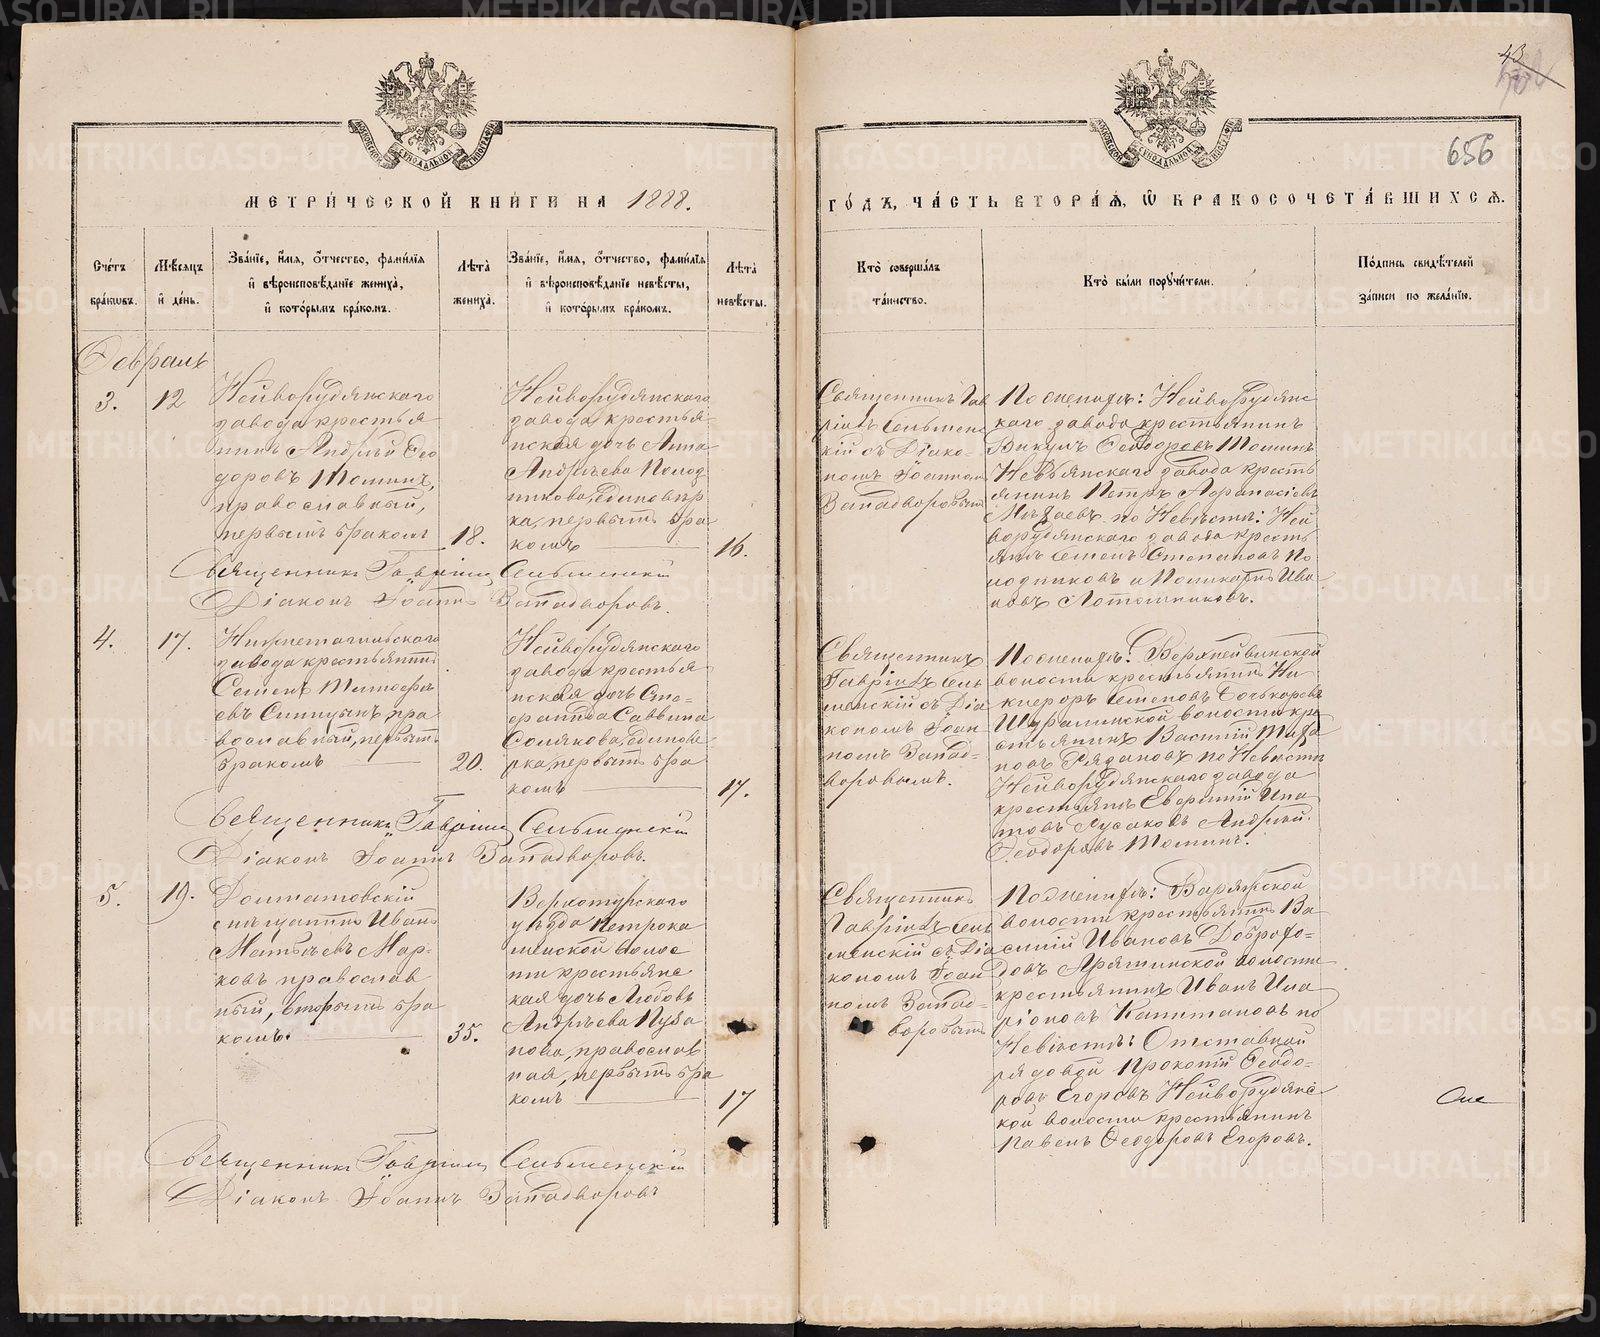 МЕТРИ́ЧЕСКОЙ КНИ́ГИ НА 1888.
Сче́тъ бра́кωвъ.
Мѣ́сяцъ и҆ де́нь.
Зва́нїе, и҆́мя, ѻ҆́тчество, фами́лїя и҆ вѣроисповѣ́данїе жениха̀, и҆ кото́рымъ бра́комъ.
Лѣ́та жениха̀.
Зва́нїе, и҆́мя, ѻ҆́тчество, фами́лїя и҆ вѣроисповѣ́данїе невѣ́сты, и҆ кото́рымъ бра́комъ.
Лѣ́та невѣ́сты.
Февраль
3.
12
Нейворудянскаго
завода крестья
нинъ Андрей Ѳео
доровъ Томинъ,
православный,
первымъ бракомъ
18.
Нейворудянскаго
завода крестья-
нская дочь Анна
Андреева Полод
никова, единовѣр
ка, первымъ бра
комъ
16.
Священникъ Гавріилъ Сельменскій
Діаконъ Іоаннъ Западворовъ.
4.
17.
Нижнетагильскаго
завода крестьянинъ
Семенъ Тимофе
евъ Синицынъ, пра
вославный, первымъ
бракомъ
20.
Нейворудянскаго
завода крестья
нская дочь Сте-
фанида Саввина
Солякова, единовѣ
рка, первымъ бра
комъ
17.
Священникъ Гавріилъ Сельменскій
Діаконъ Іоаннъ Западворовъ.
5.
19.
Долматовскій
мѣщанинъ Иванъ
Матвѣевъ Мар-
ковъ православ
ный, вторымъ бра
комъ.
35.
Верхотурскаго
уѣзда Петрока
менской волос
ти крестьянс
кая дочь Любовь
Андреева Пуза
нова, православ
ная, первымъ бра
комъ
17
Священникъ Гавріилъ Сельменскій
Діаконъ Іоаннъ Западворовъ
43
656
ГО́ДЪ, ЧА́СТЬ ВТОРА́Я, Ѡ҆ БРАКОСОЧЕТА́ВШИХСЯ.
Кто̀ соверша́лъ та́инство.
Кто̀ бы́ли поручи́тели.
По́дпись свидѣ́телей за́писи по жела́нїю.
Священникъ Гав
ріилъ Сельменс
кій съ Діако-
номъ Іоанномъ
Западворовымъ
По женихѣ: Нейворудянс
каго завода крестьянинъ
Викулъ Ѳеодоровъ Томинъ
Невьянскаго завода кресть
янинъ Петръ Аѳанасіевъ
по Невѣстѣ: Ней
ворудянскаго завода кресть
янъ Семенъ Степановъ По
лодниковъ и Поликарпъ Ива
новъ Лотошниковъ.
Священникъ
Гавріилъ Сель
менскій съ Діа
кономъ Іоан
номъ Запад-
воровымъ.
По женихѣ: Верхнейвинской
волости крестьянинъ Ни
кифоръ Семеновъ
Шуралинской волости кре
стьянинъ Василій
новъ Рядановъ по Невѣстѣ
Нейворудянскаго завода
крестьянъ Евгеній Ипа
товъ Русаковъ Андрей
Ѳеодоровъ Томинъ.
Священникъ
Гавріилъ Сель
менскій съ Діа
кономъ Іоан
номъ Запад-
воровымъ
По женихѣ: Варяжской
волости крестьянинъ Ва
силій Ивановъ Доброхо-
довъ Арятинской волости
крестьянинъ Иванъ Ила
ріоновъ Капитановъ по
Невѣстѣ: Отставной
рядовой Прокопій Ѳеодо-
ровъ Егоровъ Нейворудянс
кой волости крестьянинъ
Павелъ Ѳеодоровъ Егоровъ.